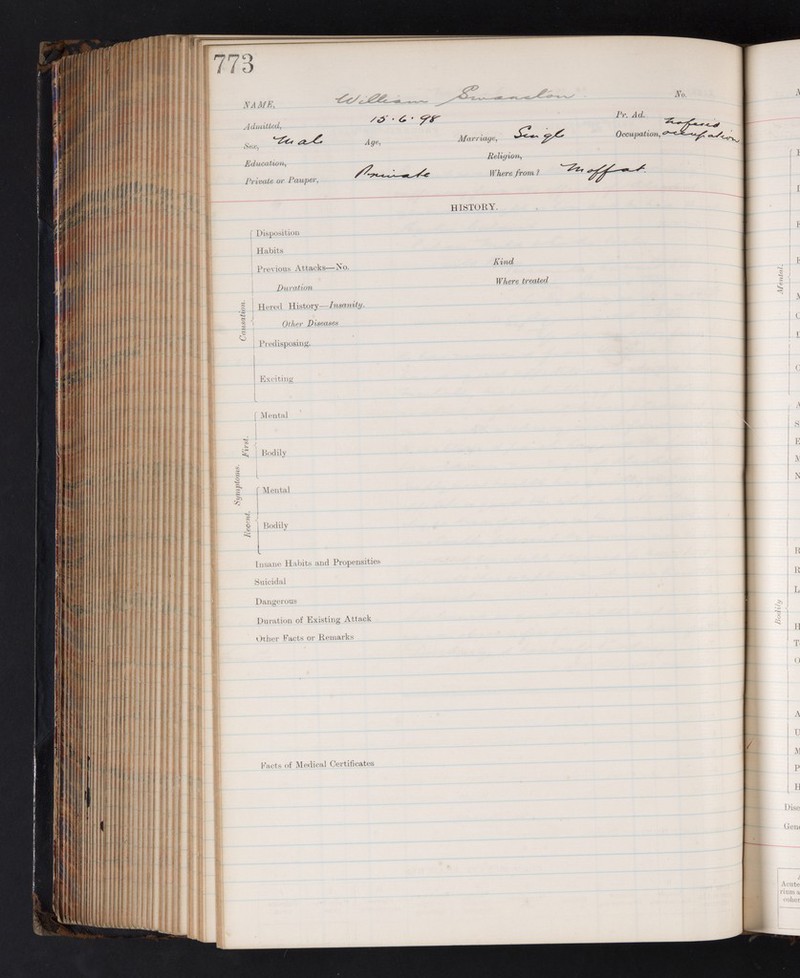 773
NAME, William Swanston No.
Admitted, 15·6·98 Pr. Ad.
Sex, Male Age, Marriage, Single Occupation, no fixed occupation
Education, Religion,
Private or Pauper, Private Where from? Moffat.
HISTORY.
Causation.
Disposition
Habits
Previous Attacks—No. Kind
Duration Where treated
Hered. History—Insanity.
Other Diseases
Predisposing.
Exciting
Symptoms.
First.
Mental
Bodily
Recent.
Mental
Bodily
Insane Habits and Propensities
Suicidal
Dangerous
Duration of Existing Attack
Other Facts or Remarks
Facts of Medical Certificates
Mental.
Bodily